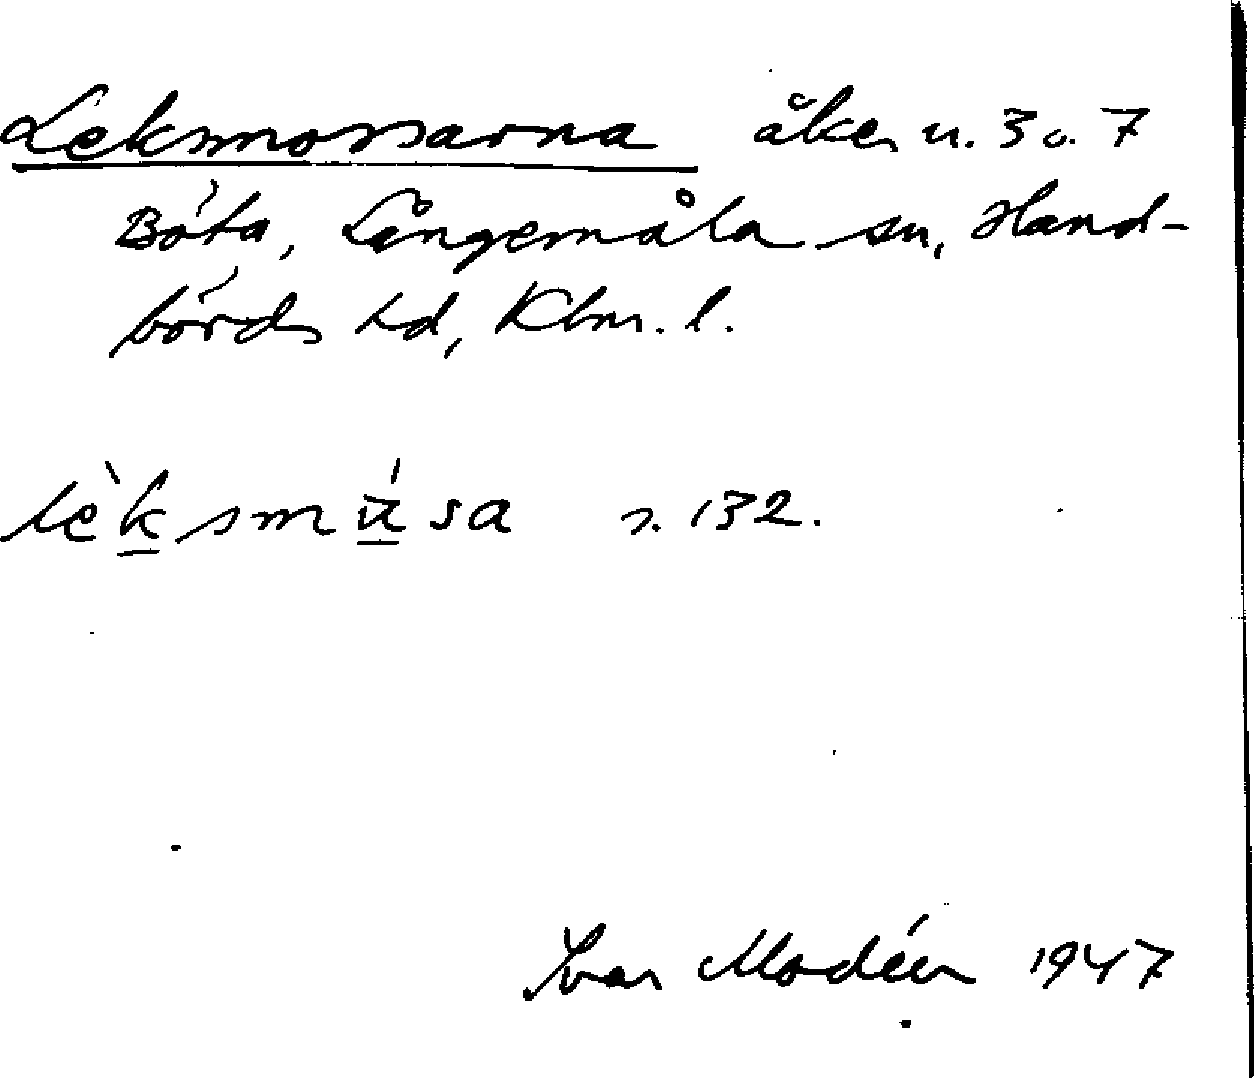 Lekmossarna åker n. 3 o. 7
Böta, Långemåla sn, Hand-
börds hd, Klm. l.
lèksmúsa s. 132.
Ivar Modéer 1947